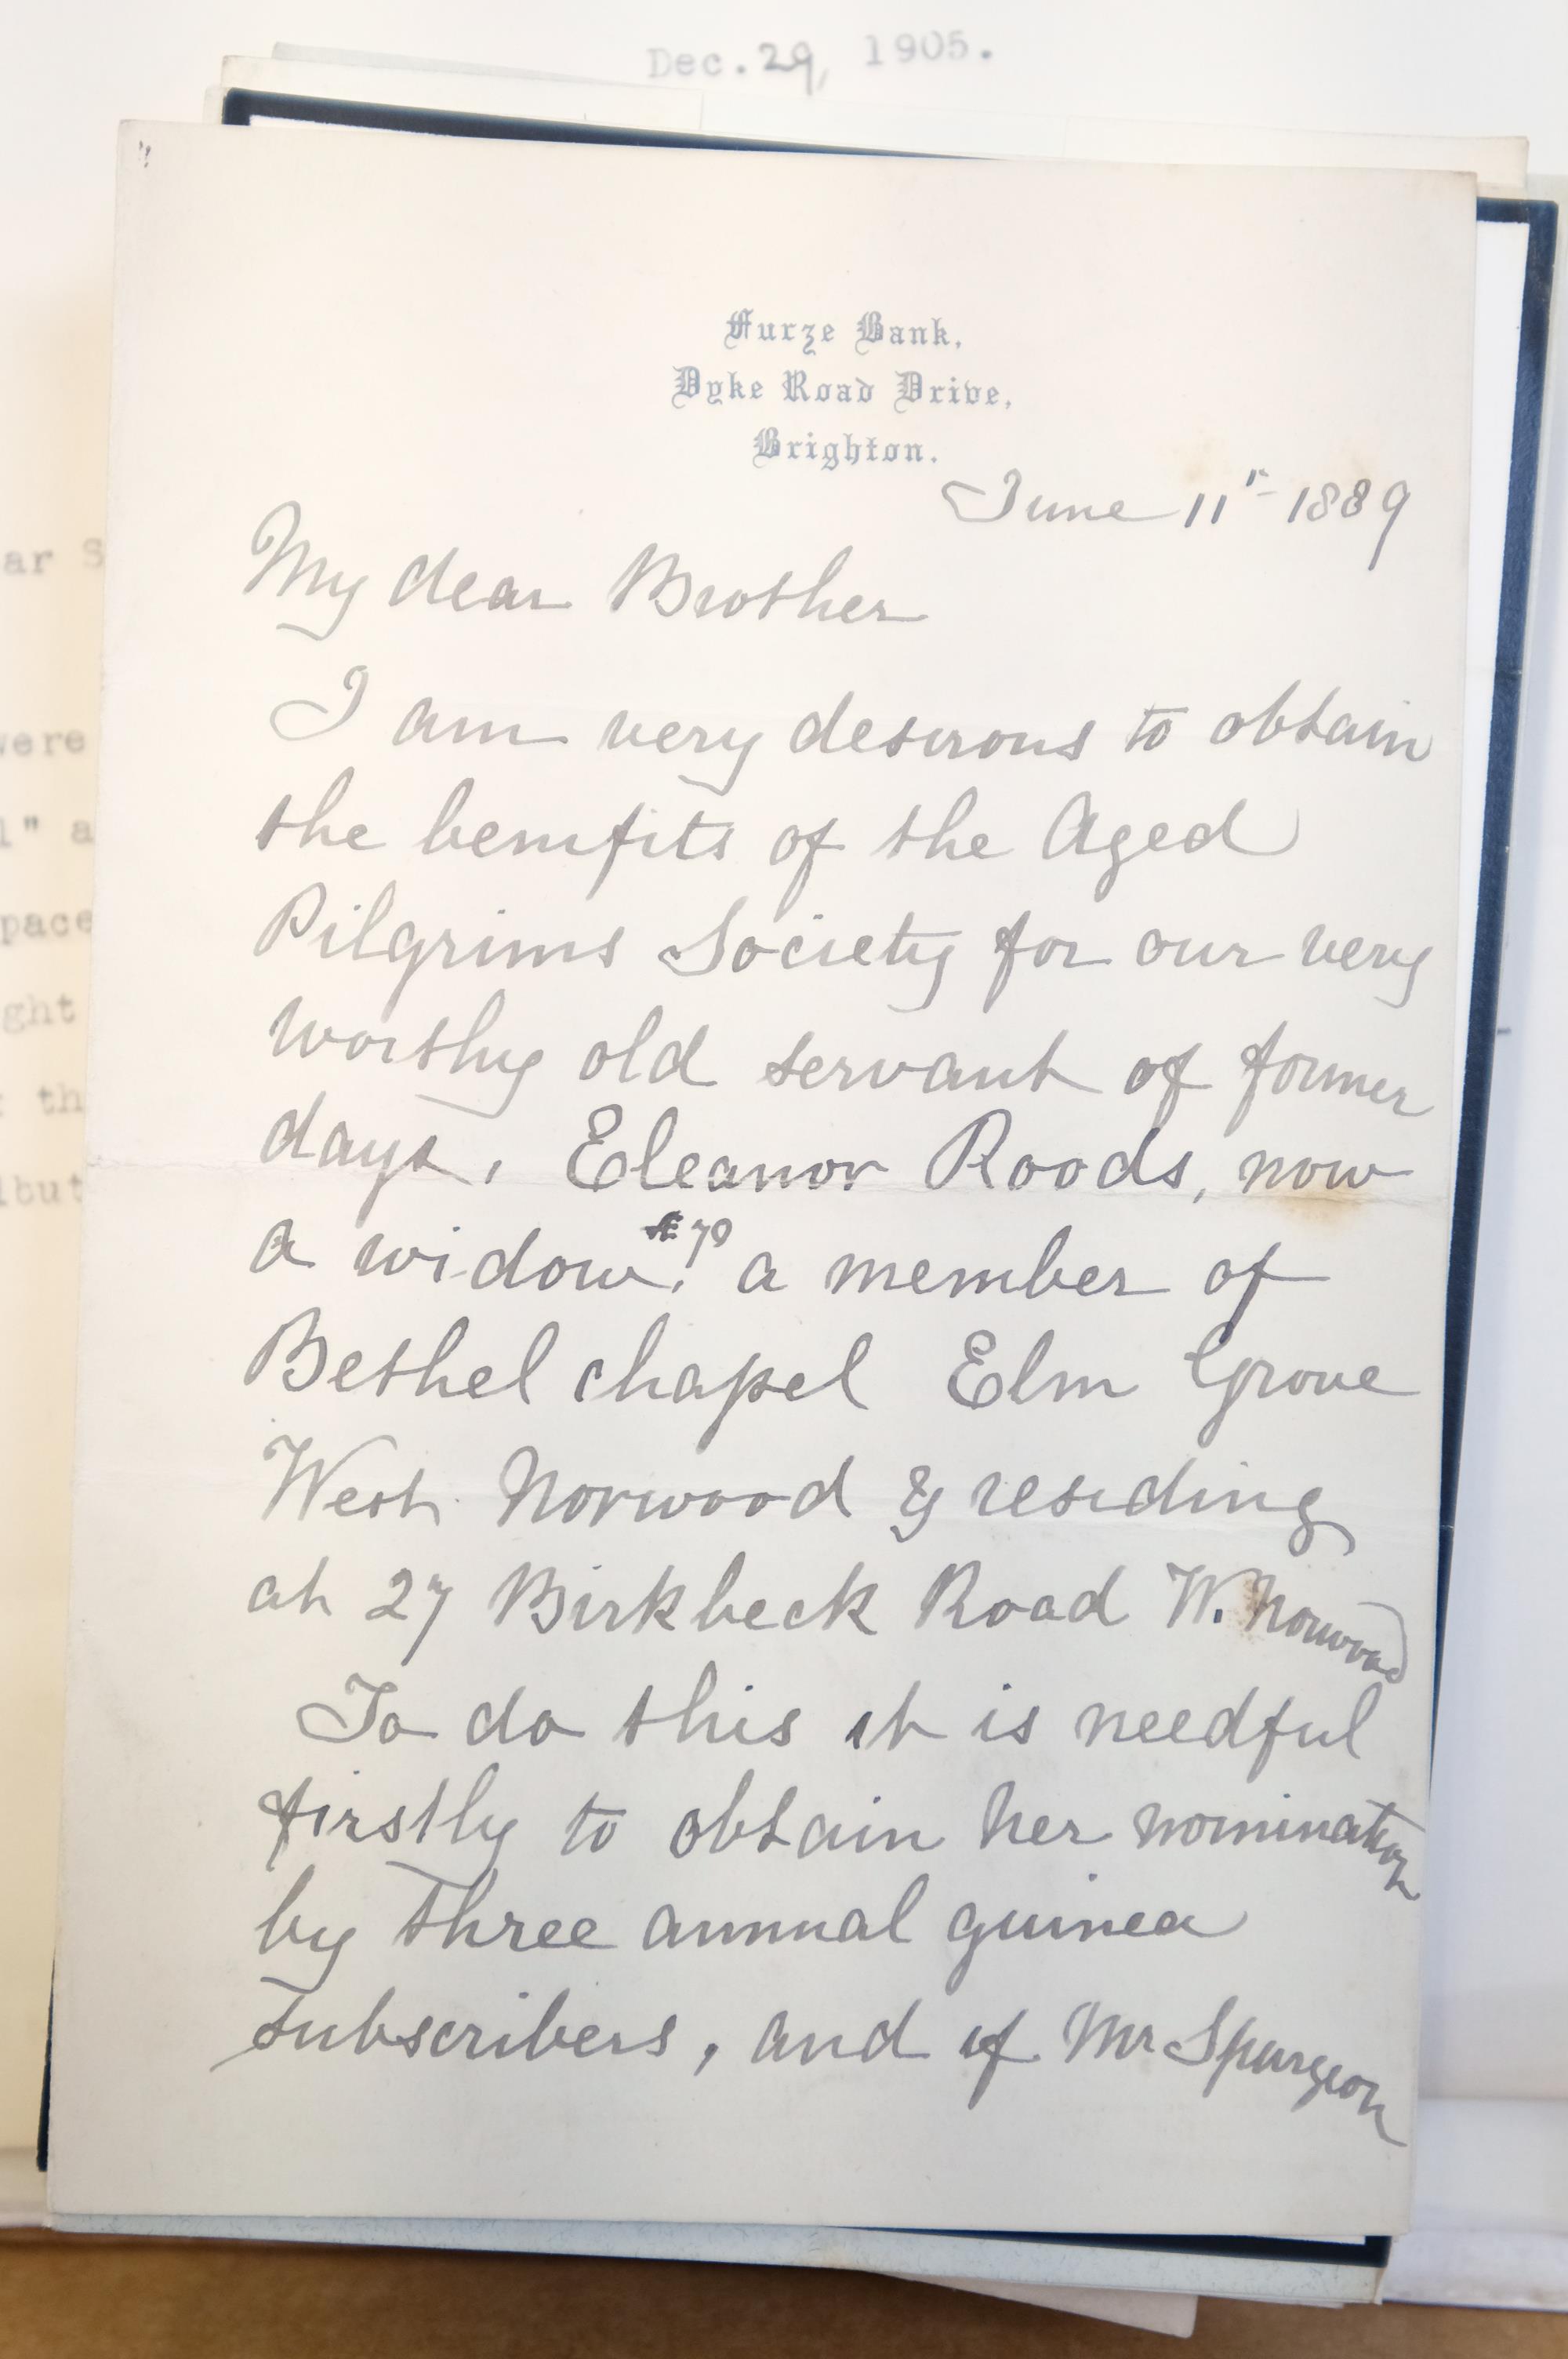 Dec. 29, 1905.
Furze Bank,
Dyke Road Drive,
Brighton.
June 11th 1889
My dear Brother
I am very desirous to obtain
the benefits of the Aged
Pilgrims Society for our very
worthy old servant of former
days, Eleanor Roods, now
a widow, Æ 70 a member of
Bethel chapel Elm Grove
West Norwood & residing
at 27 Birkbeck Road W. Norwood
To do this it is needful
firstly to obtain her nomination
by three annual guinea
subscribers, and if Mr Spurgeon
ar S
were
l" a
pace
ght
th
but